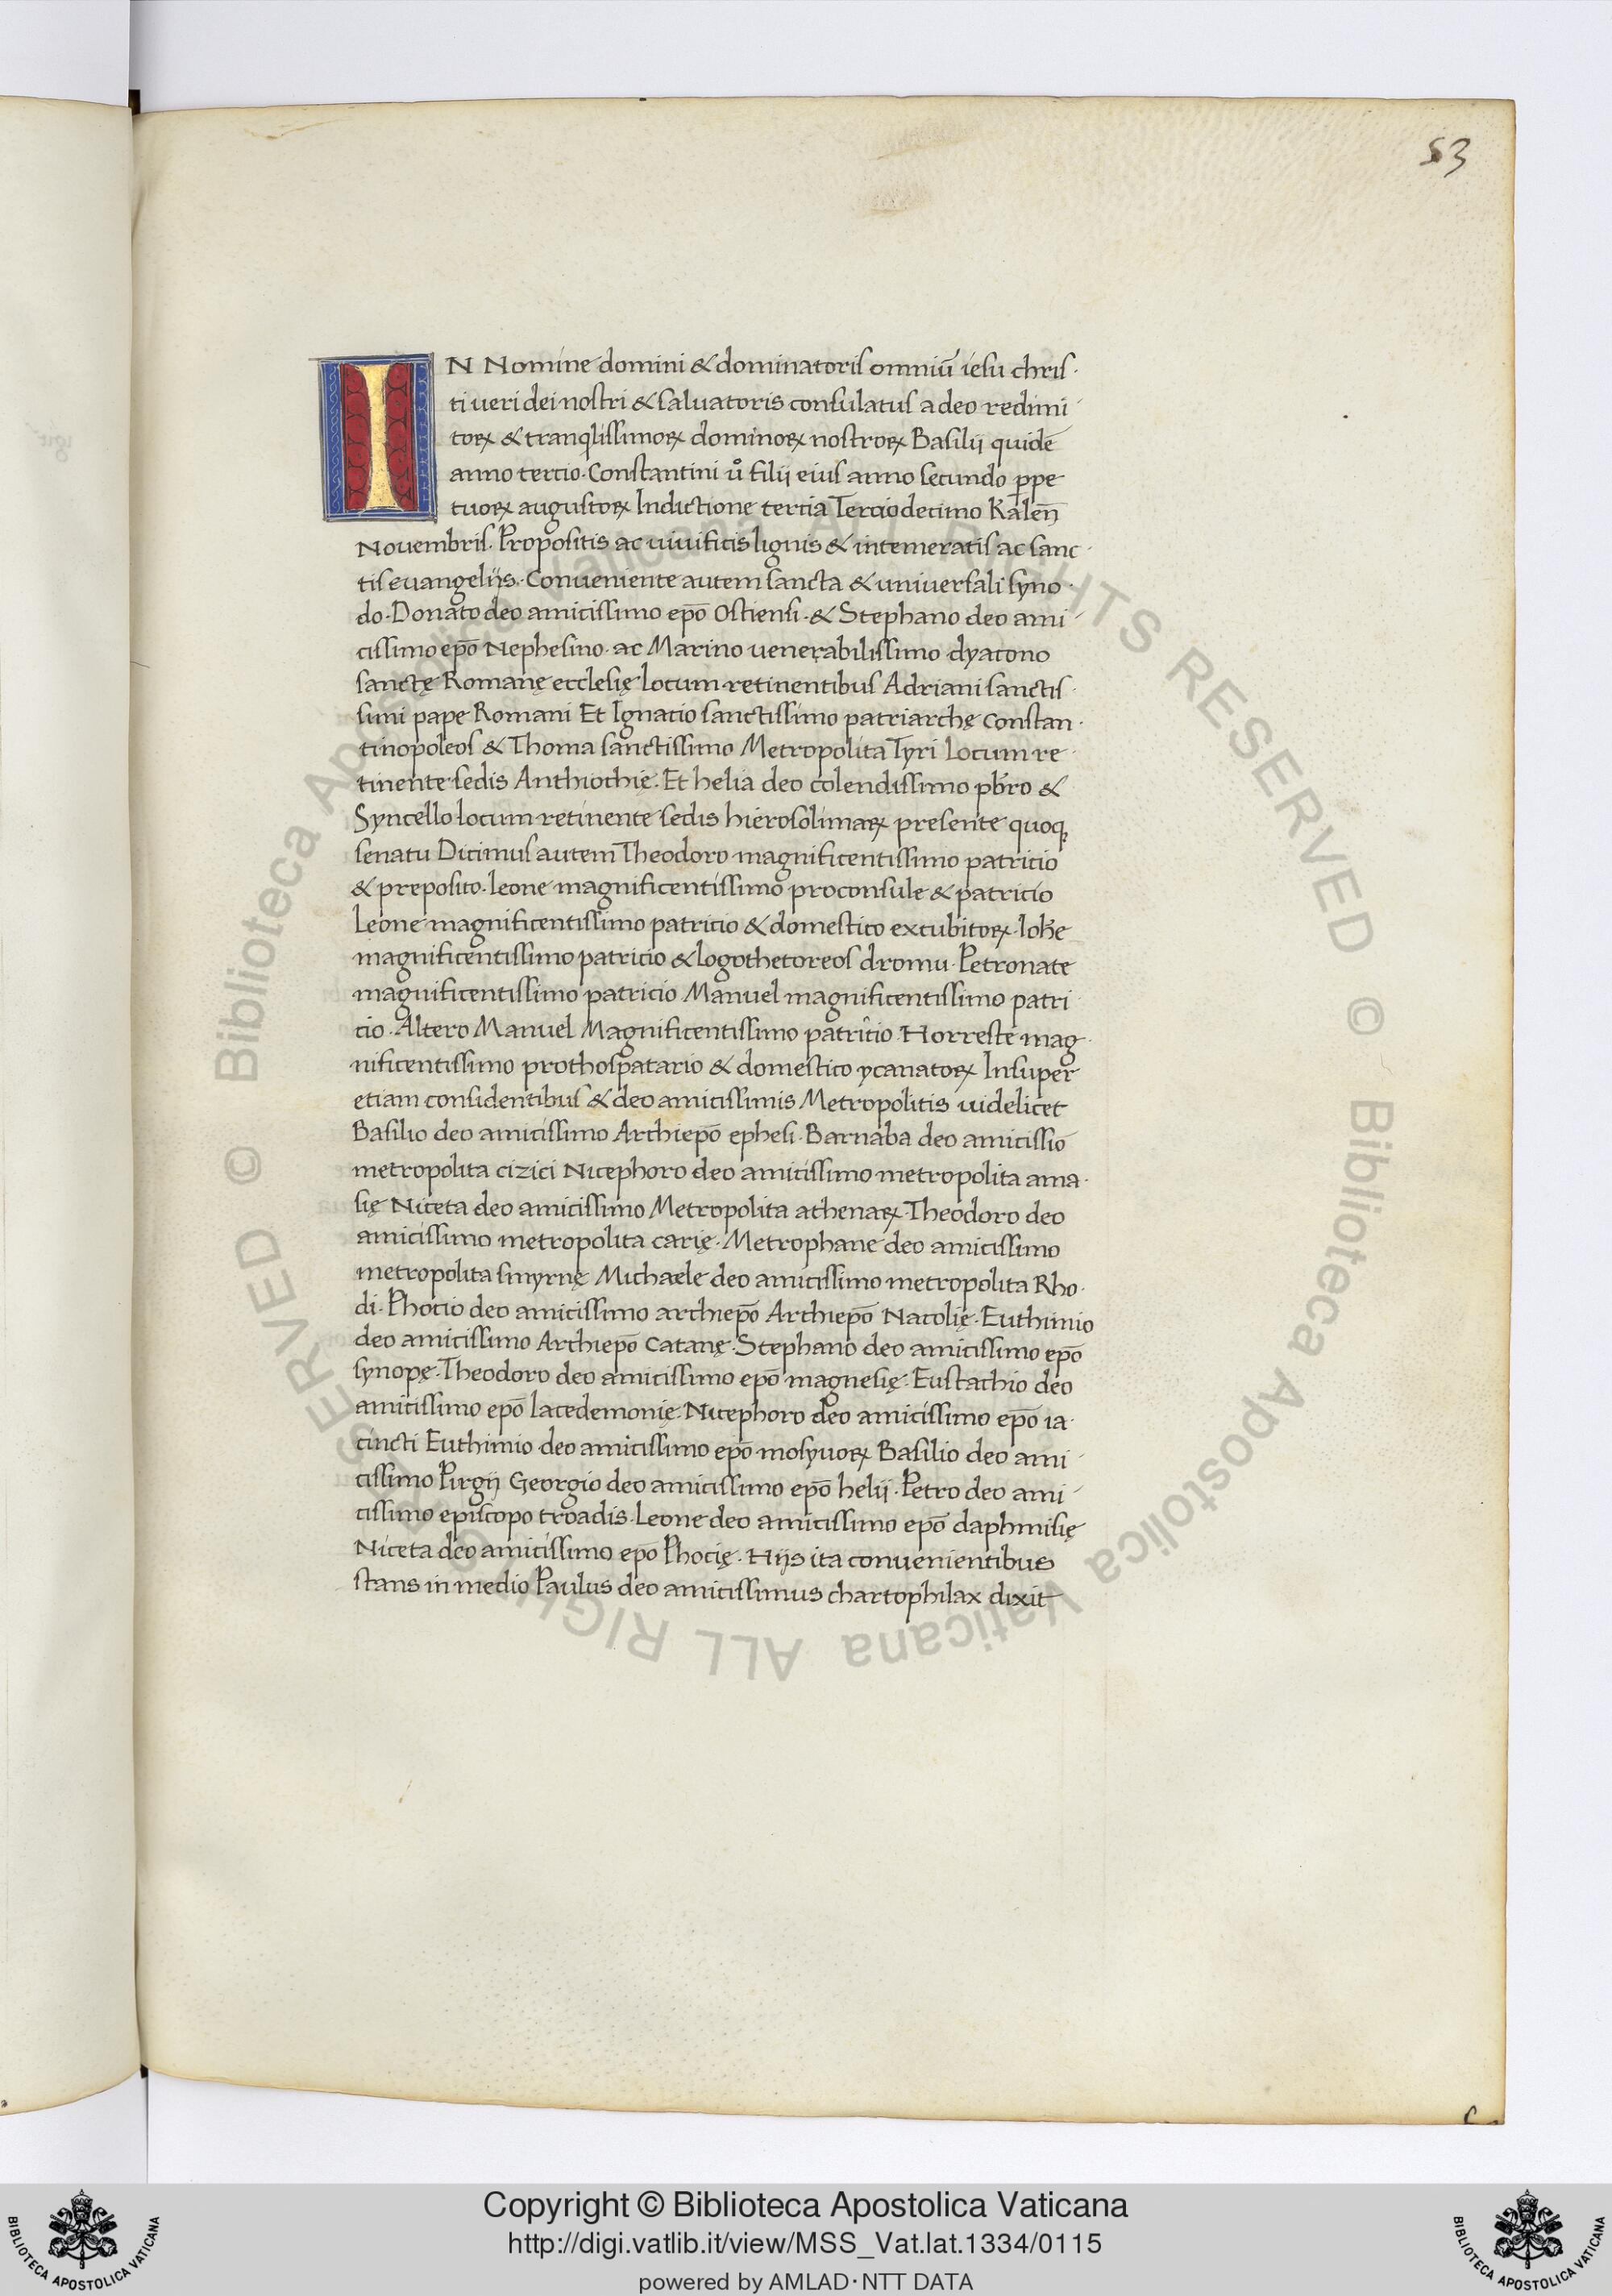 53
IN Nomine domini & dominatoris omniū iesu chris
ti ueri dei nostri & saluatoris consulatus a deo redimi
toꝝ & tranqlissimoꝝ dominoꝝ nostroꝝ Basilii quidē
anno tercio. Constantini uͦ filii eius anno secundo ꝑpe
tuoꝝ augustoꝝ Indictione tercia Terciodecimo Kaleñ
Novembris. Propositis ac vivificis lignis & intemeratis ac sanc
tis evangeliis. Conveniente autem sancta & universali syno
do. Donato deo amicissimo ep̄o Ostiensi. & Stephano deo ami
cissimo ep̄o Nephesino. ac Marino venerabilissimo dyacono
sanctę Romanę ecclesię locum retinentibus Adriani sanctis
simi pape Romani Et Ignatio sanctissimo patriarchę Constan
tinopoleos & Thoma sanctissimo Metropolita Tyri Locum re
tinente sedis Anthiochię. Et helia deo colendissimo pb̄ro &
Syncello locum retinente sedis hierosolimaꝝ presente quoq;
senatu Dicimus autem Theodoro magnificentissimo patricio
& preposito. leone magnificentissimo proconsule & patricio
Leone magnificentissimo patricio & domestico excubitoꝝ. Ioh̄e
magnificentissimo patricio & logothetoreos dromu. Petronate
magnificentissimo patricio Manuel magnificentissimo patri
cio. Altero Manuel Magnificentissimo patricio. Horreste mag
nificentissimo prothospatario & domestico ycanatoꝝ Insuper
etiam considentibus & deo amicissimis Metropolitis uidelicet
Basilio deo amicissimo Archiep̄o ephesi. Barnaba deo amicissīo
metropolita cizici Nicephoro deo amicissimo metropolita ama
się Niceta deo amicissimo Metropolita athenaꝝ. Theodoro deo
amicissimo metropolita carię. Metrophane deo amicissimo
metropolita smyrnę Michaele deo amicissimo metropolita Rho
di. Photio deo amicissimo archiep̄o Archiep̄o Nacolię. Euthimio
deo amicissimo Archiep̄o Catanę. Stephano deo amicissimo ep̄o
synopę. Theodoro deo amicissimo ep̄o magnesię. Eustachio deo
amicissimo ep̄o lacedemonię. Nicephoro deo amicissimo ep̄o ia
cincti Euthimio deo amicissimo ep̄o mosyuoꝝ Basilio deo ami
cissimo Pirgii Georgio deo amicissimo ep̄o helii. Petro deo ami
cissimo episcopo troadis. Leone deo amicissimo ep̄o daphnisię
Niceta deo amicissimo ep̄o Phocię. Hiis ita convenientibus
stans in medio Paulus deo amicissimus chartophilax dixit
© Biblioteca Apostolica Vaticana ALL RIGHTS RESERVED © Biblioteca Apostolica Vaticana ALL RIGHTS RESERVED
BIBLIOTECA APOSTOLICA VATICANA
Copyright © Biblioteca Apostolica Vaticana
http://digi.vatlib.it/view/MSS_Vat.lat.1334/0115
powered by AMLAD·NTT DATA
BIBLIOTECA APOSTOLICA VATICANA